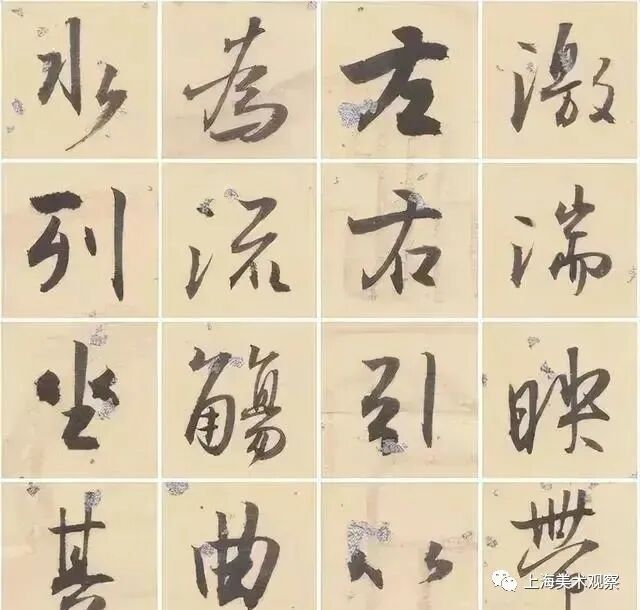 激湍映帶
左右引以
為流觴曲
水列坐其
上海美术观察